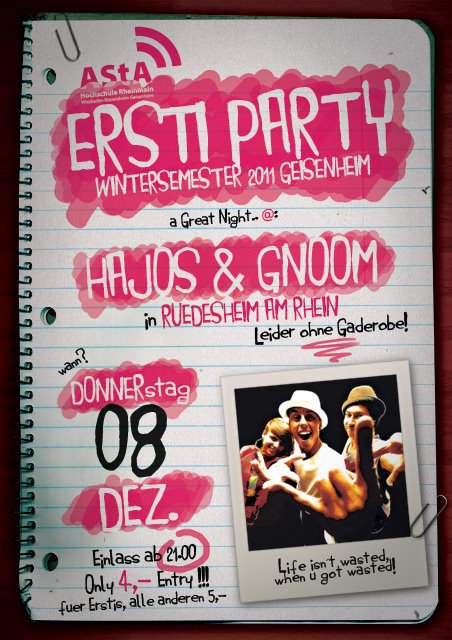 AStA
Hochschule RheinMain
Wiesbaden Rüsselsheim Geisenheim
ERSTI PARTY
WINTERSEMESTER 2011 GEISENHEIM
a Great Night.. @:
HAJOS & GNOOM
in RUEDESHEIM AM RHEIN
Leider ohne Gaderobe!
wann?
DONNERstag
08
DEZ.
Einlass ab 21:00
Only 4,- Entry !!!
fuer Erstis, alle anderen 5,-
Life isn't wasted,
when u got wasted!